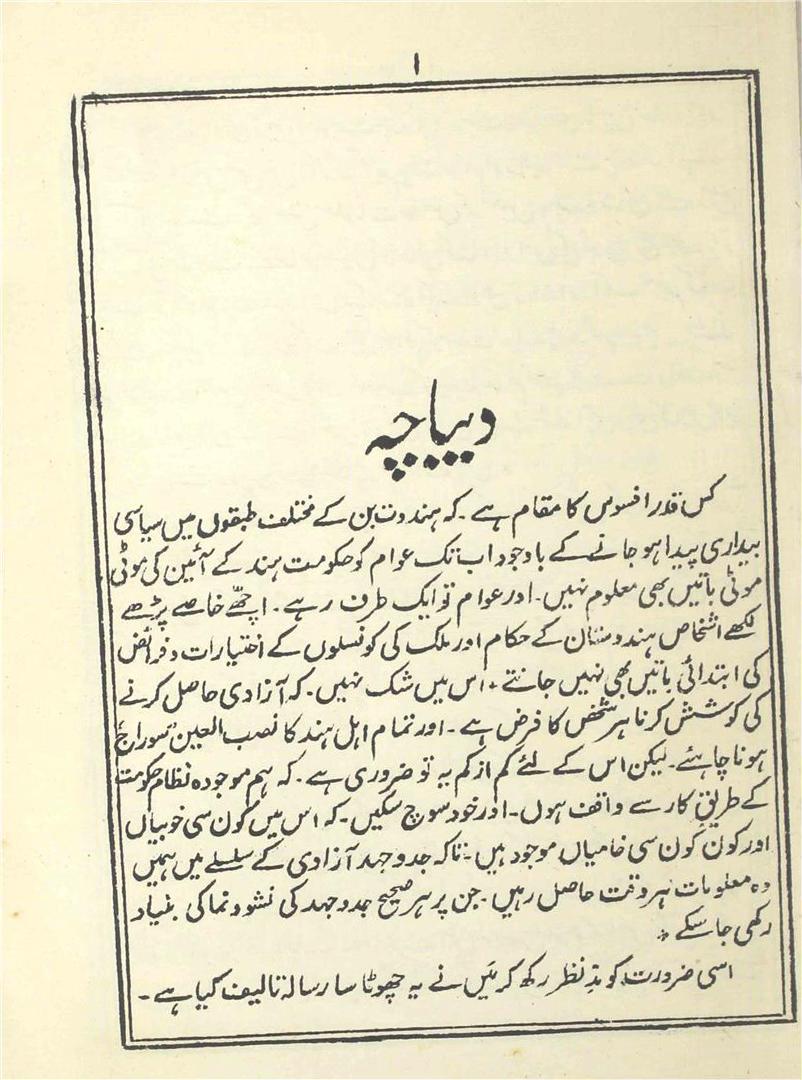 ۱
دیباچہ
کس قدر افسوس کا مقام ہے۔ کہ ہندوستان کے مختلف طبقوں میں سیاسی
بیداری پیدا ہو جانے کے باوجود اب تک عوام کو حکومت ہند کے آئین کی موٹی
موٹی باتیں بھی معلوم نہیں۔ اور عوام تو ایک طرف رہے۔ اچھے خاصے پڑھے
لکھے اشخاص ہندوستان کے حکام اور ملک کی کونسلوں کے اختیارات و فرائض
کی ابتدائی باتیں بھی نہیں جانتے۔ اس میں شک نہیں۔ کہ آزادی حاصل کرنے
کی کوشش کرنا ہر شخص کا فرض ہے۔ اور تمام اہل ہند کا نصب العین "سوراج"
ہونا چاہئے۔ لیکن اس کے لئے کم از کم یہ تو ضروری ہے۔ کہ ہم موجودہ نظام حکومت
کے طریقِ کار سے واقف ہوں۔ اور خود سوچ سکیں۔ کہ اس میں کون سی خوبیاں
اور کون کون سی خامیاں موجود ہیں۔ تاکہ جدوجہد آزادی کے سلسلے میں ہمیں
وہ معلومات ہر وقت حاصل رہیں۔ جن پر ہر صحیح جدوجہد کی نشوونما کی بنیاد
رکھی جا سکے *
اسی ضرورت کو مدِ نظر رکھ کر میں نے یہ چھوٹا سا رسالہ تالیف کیا ہے۔